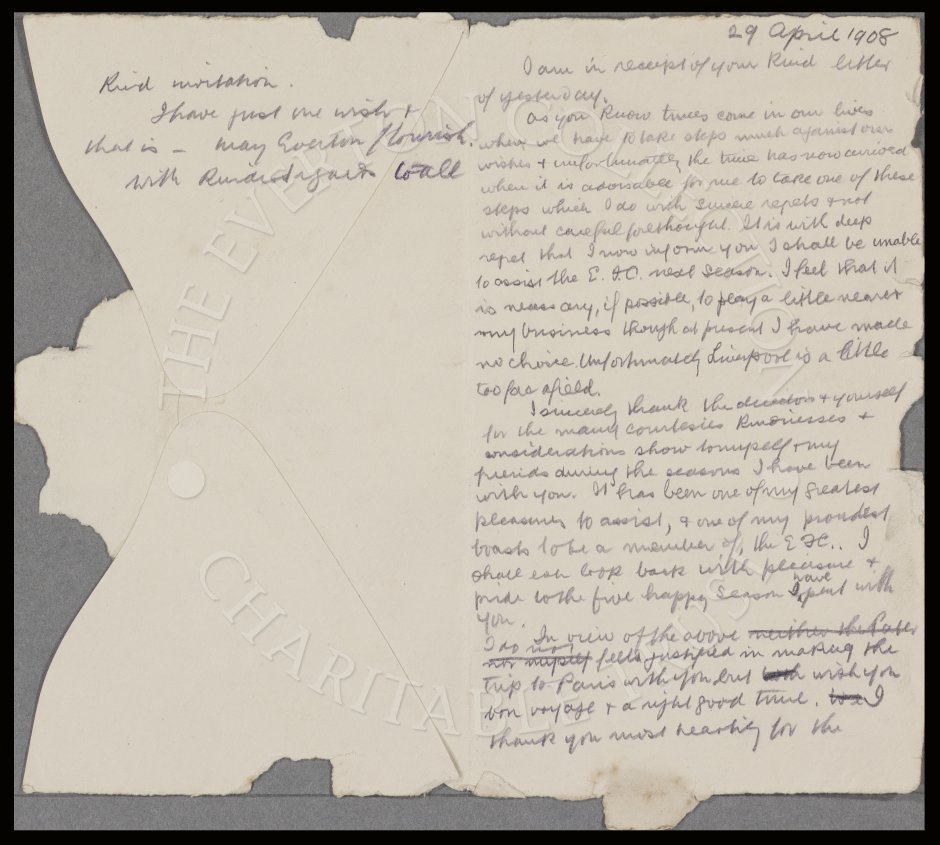 29 April 1908
I am in receipt of your Kind letter
of yesterday.
As you Know times come in our lives
when we have to take steps much against our
wishes & unfortunately the time has now arrived
when it is advisable for me to take one of these
steps which I do with sincere regrets & not
without careful forethought. It is with deep
regret that I now inform you I shall be unable
to assist the E. F.C. next season. I feel that it
is necessary, if possible, to play a little nearer
my business though at present I have made
no choice. Unfortunately Liverpool is a little
too far afield.
I sincerely thank the directors & yourself
for the many courtesies Kindnesses &
considerations show to myself & my
friends during the seasons I have been
with you. It has been one of my greatest
pleasures to assist, & one of my proudest
boasts to be a member of, the E FC.. I
shall ever look back with pleasure &
pride to the five happy season I have spent with
you.
In view of the above neither the Pater
nor myself I do not feel justified in making the
trip to Paris with you but wish you
bon voyage & a right good time. I
thank you most heartily for the
Kind invitation.
I have just one wish &
that is – may Everton flourish.
with Kindest regards to all
THE EVERTON COLLECTION
CHARITABLE TRUST